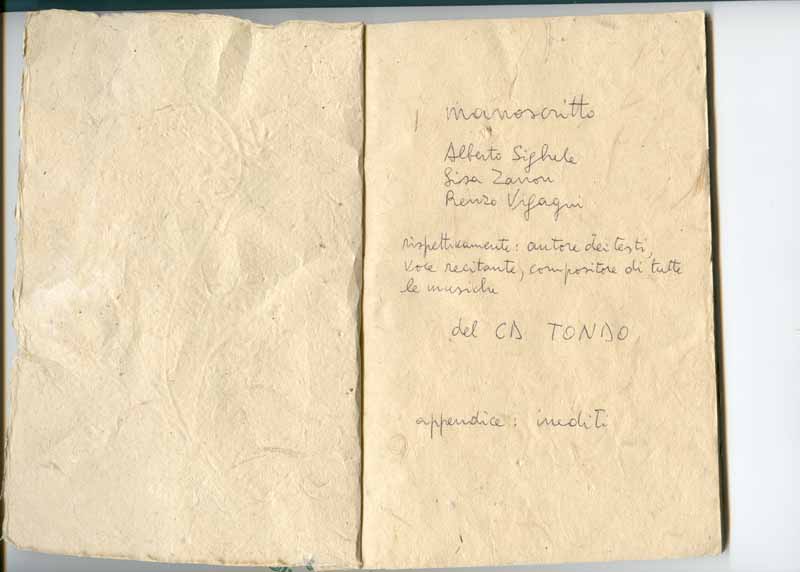 manoscritto
Alberto Sighele
Lisa Zanon
Renzo Vigagni
rispettivamente: autore dei testi,
voce recitante, compositore di tutte
le musiche
del CD TONDO
appendice: inediti